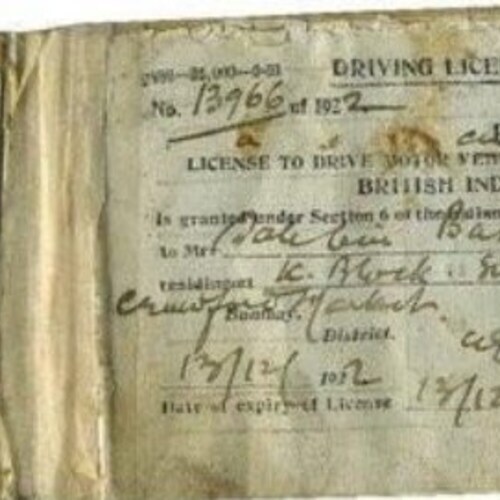 DRIVING LICEN
No. 13966 of 1922
LICENSE TO DRIVE MOTOR VEH
BRITISH IND
Is granted under Section 6 of the Indian
to Mr.
residing at K. Block
Crawford Market.
Bombay.
District.
13/12/ 1922 13/12
Date of expiry of License